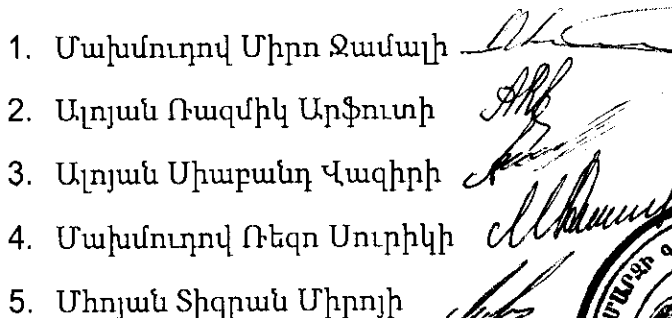 1. Մախմուդով Միրո Ջամալի
2. Ալոյան Ռազմիկ Արֆուտի
3. Ալոյան Սիաբանդ Վազիրի
4. Մախմուդով Ռեզո Սուրիկի
5. Մհոյան Տիգրան Միրոյի
ՄԱՐԶԻ